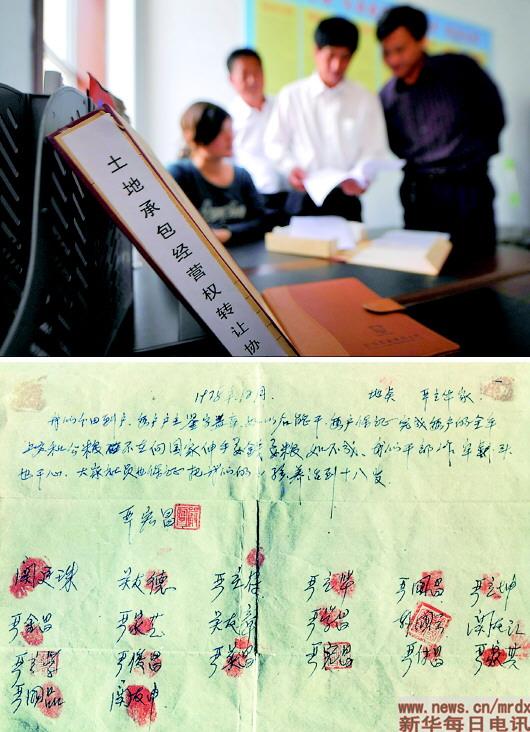 土地承包经营权转让协
1978年12月 地点 严立华家
我们分田到户,每户户主签字盖章,如以后能干,每户保证完成每户的全年
上交和公粮,不在向国家伸手要钱要粮,如不成,我们干部作牢刹头
也干心,大家社员也保证把我们的小孩养活到十八岁。
严宏昌
关友德 严立符 严立华 严国昌 严立坤
严金昌 严家芝 关友章 严学昌 韩国云 关友江
严立学 严俊昌 严美昌 严宏昌 严付昌 严家其
严国品 关友申
www.news.cn/mrdx
新华每日电讯